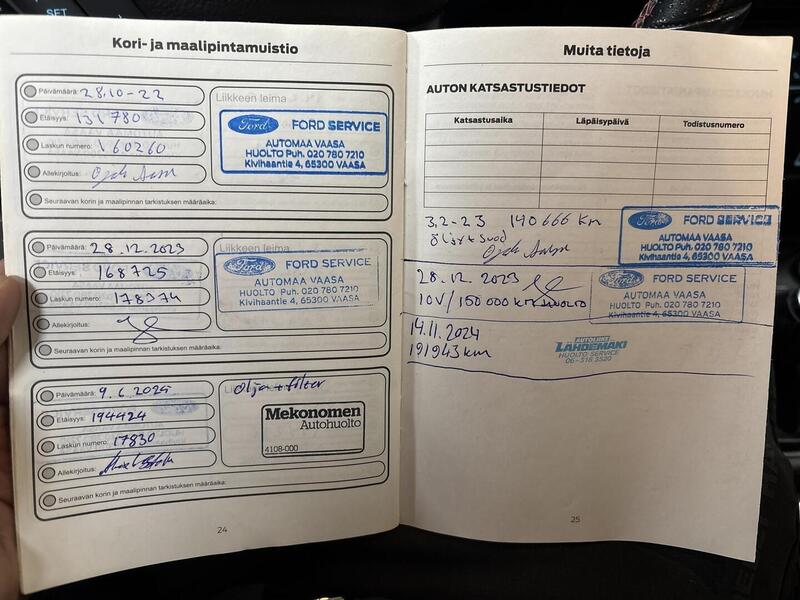 SET
Kori- ja maalipintamuistio
Päivämäärä: 28.10-22
Etäisyys: 131780
Laskun numero: 160260
Allekirjoitus:
Seuraavan korin ja maalipinnan tarkistuksen määräaika:
Liikkeen leima
Ford FORD SERVICE
AUTOMAA VAASA
HUOLTO Puh. 020 780 7210
Kivihaantie 4, 65300 VAASA
Päivämäärä: 28.12.2023
Etäisyys: 168725
Laskun numero: 178374
Allekirjoitus:
Seuraavan korin ja maalipinnan tarkistuksen määräaika:
Liikkeen leima
Ford FORD SERVICE
AUTOMAA VAASA
HUOLTO Puh. 020 780 7210
Kivihaantie 4, 65300 VAASA
Päivämäärä: 9.6.2025
Etäisyys: 194424
Laskun numero: 17830
Allekirjoitus:
Seuraavan korin ja maalipinnan tarkistuksen määräaika:
Olja + filter
Mekonomen
Autohuolto
4108-000
24
Muita tietoja
AUTON KATSASTUSTIEDOT
Katsastusaika Läpäisypäivä Todistusnumero
3,2-23 140666 km
Öljyt + suod
Ford FORD SERVICE
AUTOMAA VAASA
HUOLTO Puh. 020 780 7210
Kivihaantie 4, 65300 VAASA
28.12.2023
10V/150 000 km HUOLTO
Ford FORD SERVICE
AUTOMAA VAASA
HUOLTO Puh. 020 780 7210
Kivihaantie 4, 65300 VAASA
14.11.2024
191943 km
AUTOLIIKE
LÄHDEMÄKI
HUOLTO-SERVICE
06-318 3520
25